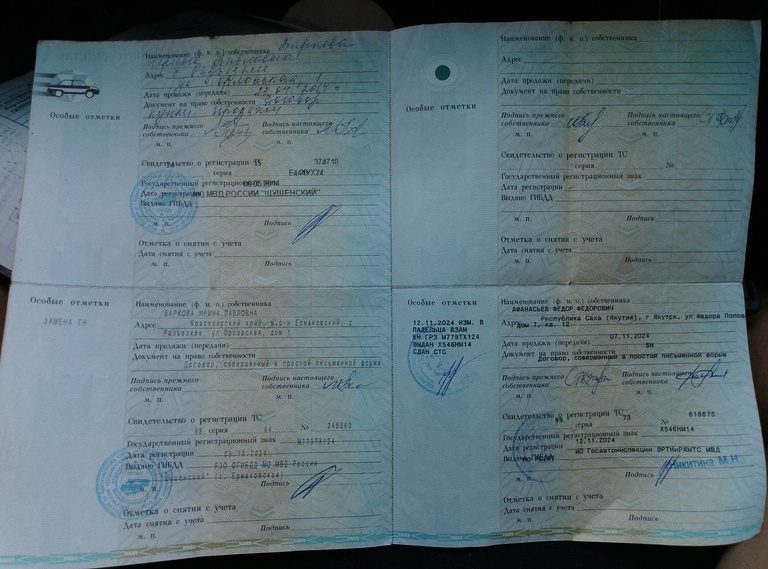 Особые отметки
Наименование (ф. и. о.) собственника Баркова
Ирина Павловна
Адрес с. Разъезжее
ул. Орловская 1
Дата продажи (передачи) 22.04.2014 г
Документ на право собственности Договор
купли продажи
Подпись прежнего собственника
Подпись настоящего собственника
м. п.
м. п.
Свидетельство о регистрации ТС
24 серия 15
Государственный регистрационный
Дата регистрации 06.05.2014
МО МВД РОССИИ "ШУШЕНСКИЙ"
Выдано ГИБДД
м. п.
Подпись
Отметка о снятии с учета
Дата снятия с учета
м. п.
Подпись
Особые отметки
Наименование (ф. и. о.) собственника
Адрес
Дата продажи (передачи)
Документ на право собственности
Подпись прежнего собственника
Подпись настоящего собственника
м. п.
м. п.
Свидетельство о регистрации ТС
серия №
Государственный регистрационный знак
Дата регистрации
Выдано ГИБДД
м. п.
Подпись
Отметка о снятии с учета
Дата снятия с учета
м. п.
Подпись
Особые отметки
ЗАМЕНА ГН
Наименование (ф. и. о.) собственника
БАРКОВА ИРИНА ПАВЛОВНА
Адрес Красноярский край, м.р-н Ермаковский, с
Разъезжее, ул Орловская, дом 1
Дата продажи (передачи)
Документ на право собственности
Договор, совершенный в простой письменной форме
Подпись прежнего собственника
Подпись настоящего собственника
м. п.
м. п.
Свидетельство о регистрации ТС
99 серия 64 №
Государственный регистрационный знак М779ТХ124
Дата регистрации 03.10.2024
Выдано ГИБДД РЭО ОГИБДД МО МВД России
"Шушенский" (с. Ермаковское)
м. п.
Подпись
Отметка о снятии с учета
Дата снятия с учета
м. п.
Подпись
Особые отметки
12.11.2024 ИЗМ. В
ЛАДЕЛЬЦА ВЗАМ
ЕН ГРЗ М779ТХ124
ВЫДАН Х546НМ14
СДАН СТС
Наименование (ф. и. о.) собственника
АФАНАСЬЕВ ФЕДОР ФЕДОРОВИЧ
Адрес Республика Саха (Якутия), г Якутск, ул Федора Попова
дом 7, кв. 12
Дата продажи (передачи) 07.11.2024
Документ на право собственности БН
Договор, совершенный в простой письменной форме
Подпись прежнего собственника
Подпись настоящего собственника
м. п.
м. п.
Свидетельство о регистрации ТС
99 серия 73 № 616675
Государственный регистрационный знак Х546НМ14
Дата регистрации 12.11.2024
Выдано ГИБДД МО Госавтоинспекции ЭРТНиРАМТС МВД
Никитина М.Н.
м. п.
Подпись
Отметка о снятии с учета
Дата снятия с учета
м. п.
Подпись